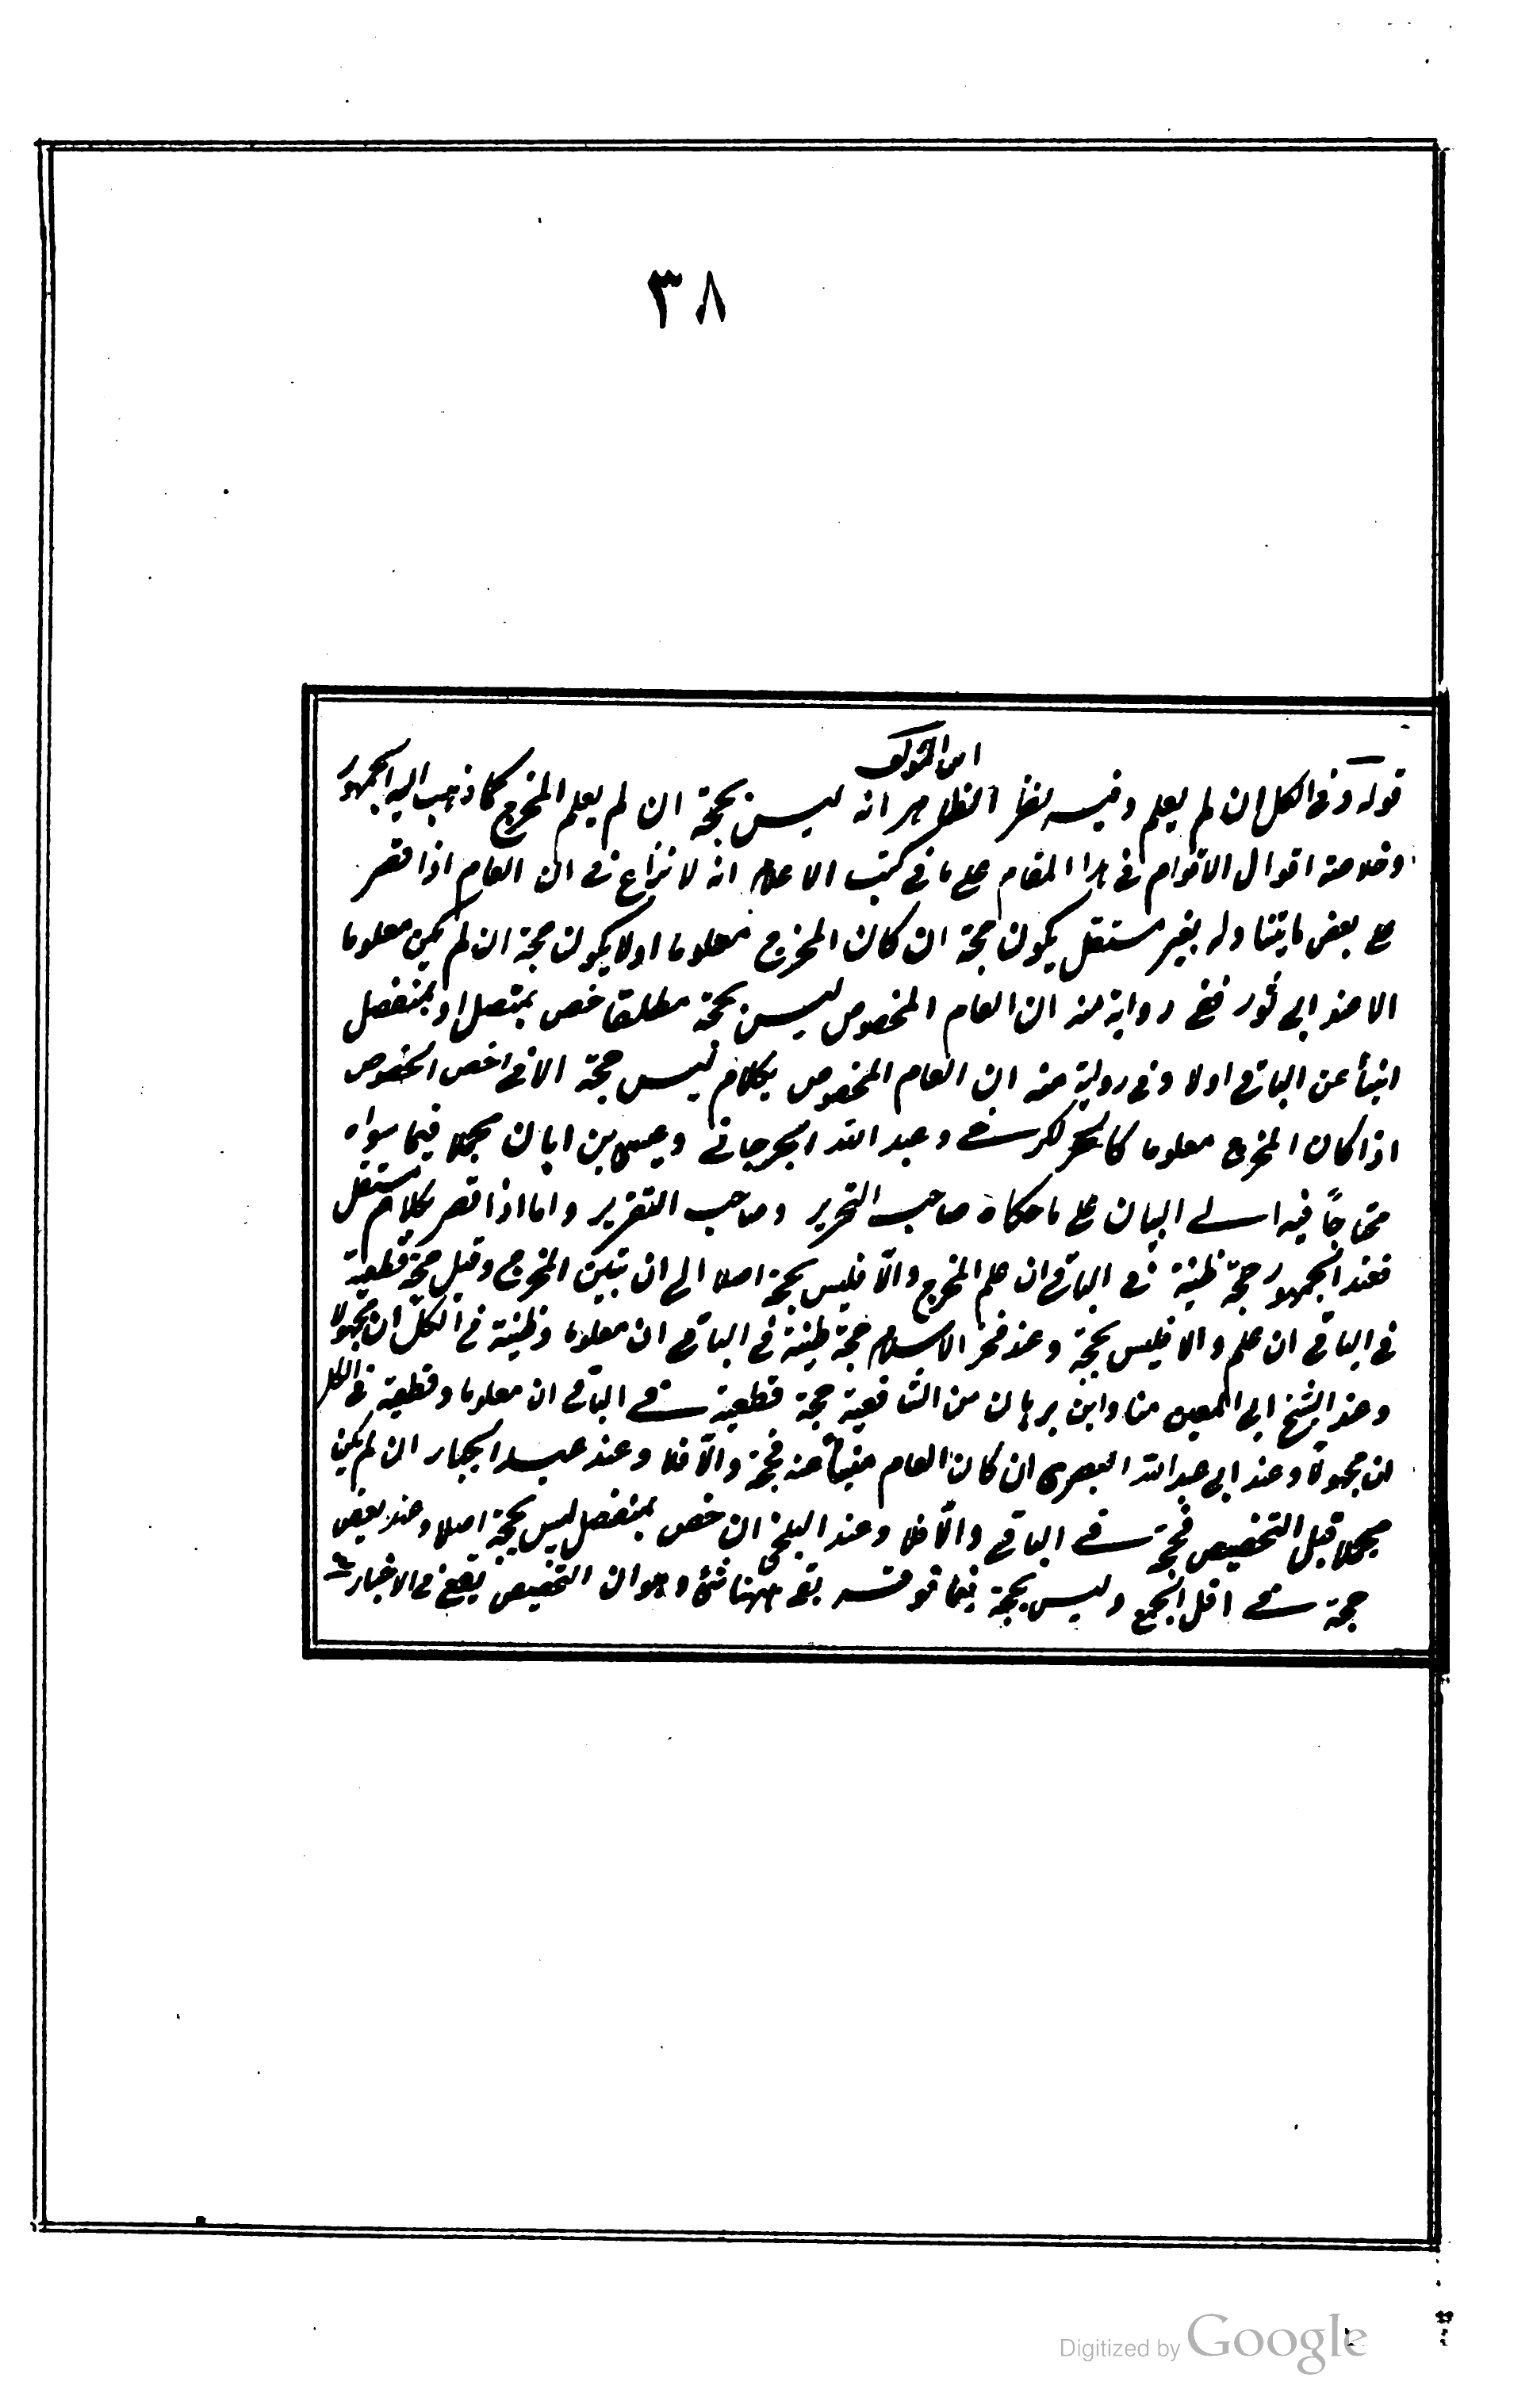 ٣٨
قوله وفى الكل ان لم يعلم وفيه نظر الظاهر انه ليس بحجة ان لم يعلم المخرج كما ذهب اليه الجمهور
وخلاصة اقوال الاقوام فى هذا المقام على ما فى كتب الاعلام انه لا نزاع فى ان العام اذا قصر
على بعض ما يتناوله بغير مستقل يكون حجة ان كان المخرج معلوما اولا يكون حجة ان لم يكن معلوما
الا عند ابى ثور ففى رواية منه ان العام المخصوص ليس بحجة مطلقا خص بمتصل او بمنفصل
انبأ عن الباقى اولا وفى رواية منه ان العام المخصوص بكلام ليس حجة الا فى اخص الخصوص
اذا كان المخرج معلوما كالكرخى وعبد الله الجرجانى وعيسى بن ابان مجملا فيما سواه
محتاجًا فيه الى البيان على ما حكاه صاحب التحرير وصاحب التقرير واما اذا قصر بكلام مستقل
فعند الجمهور حجة ظنية فى الباقى ان علم المخرج والّا فليس بحجة اصلا الى ان تبين المخرج وقيل حجة قطعية
فى الباقى ان علم والا فليس بحجة وعند فخر الاسلام حجة ظنية فى الباقى ان معلوما وظنية فى الكل ان مجهولا
وعند الشيخ ابى المعين منا وابن برهان من الشافعية حجة قطعية فى الباقى ان معلوما وقطعية فى الكل
ان مجهولا وعند ابى عبد الله البصرى ان كان العام منبأ عنه فحجة والّا فلا وعند عبد الجبار ان لم يكن
مجملا قبل التخصيص فحجة فى الباقى والّا فلا وعند البلخى ان خص بمنفصل ليس بحجة اصلا وعند بعض
حجة فى اقل الجمع وليس بحجة فيما فوقه بقى ههنا شئ وهو ان التخصيص يقع فى الاخبار
Digitized by Google